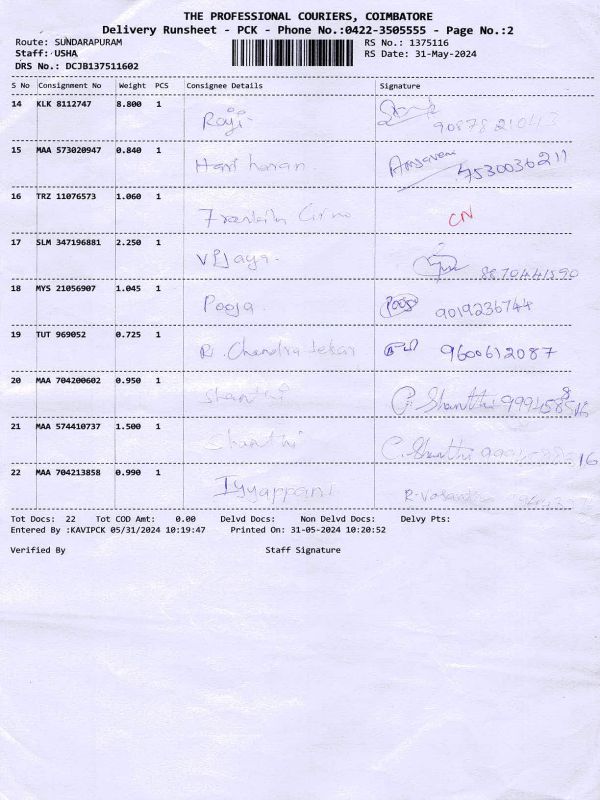 THE PROFESSIONAL COURIERS, COIMBATORE
Delivery Runsheet - PCK - Phone No.:0422-3505555 - Page No.:2
Route: SUNDARAPURAM RS No.: 1375116
Staff: USHA RS Date: 31-May-2024
DRS No.: DCJB137511602
S No Consignment No Weight PCS Consignee Details Signature
14 KLK 8112747 8.800 1 Raji 9087821043
15 MAA 573020947 0.840 1 Hari haran 7530036211
16 TRZ 11076573 1.060 1 CN
17 SLM 347196881 2.250 1 Vijaya. 8870441590
18 MYS 21056907 1.045 1 Pooja. Pooja 9019236744
19 TUT 969052 0.725 1 R. Chandra sekar 9600612087
20 MAA 704200602 0.950 1 Shanthi C. Shanthi
21 MAA 574410737 1.500 1 Shanthi C. Shanthi
22 MAA 704213858 0.990 1 Iyyappan
Tot Docs: 22 Tot COD Amt: 0.00 Delvd Docs: Non Delvd Docs: Delvy Pts:
Entered By :KAVIPCK 05/31/2024 10:19:47 Printed On: 31-05-2024 10:20:52
Verified By Staff Signature